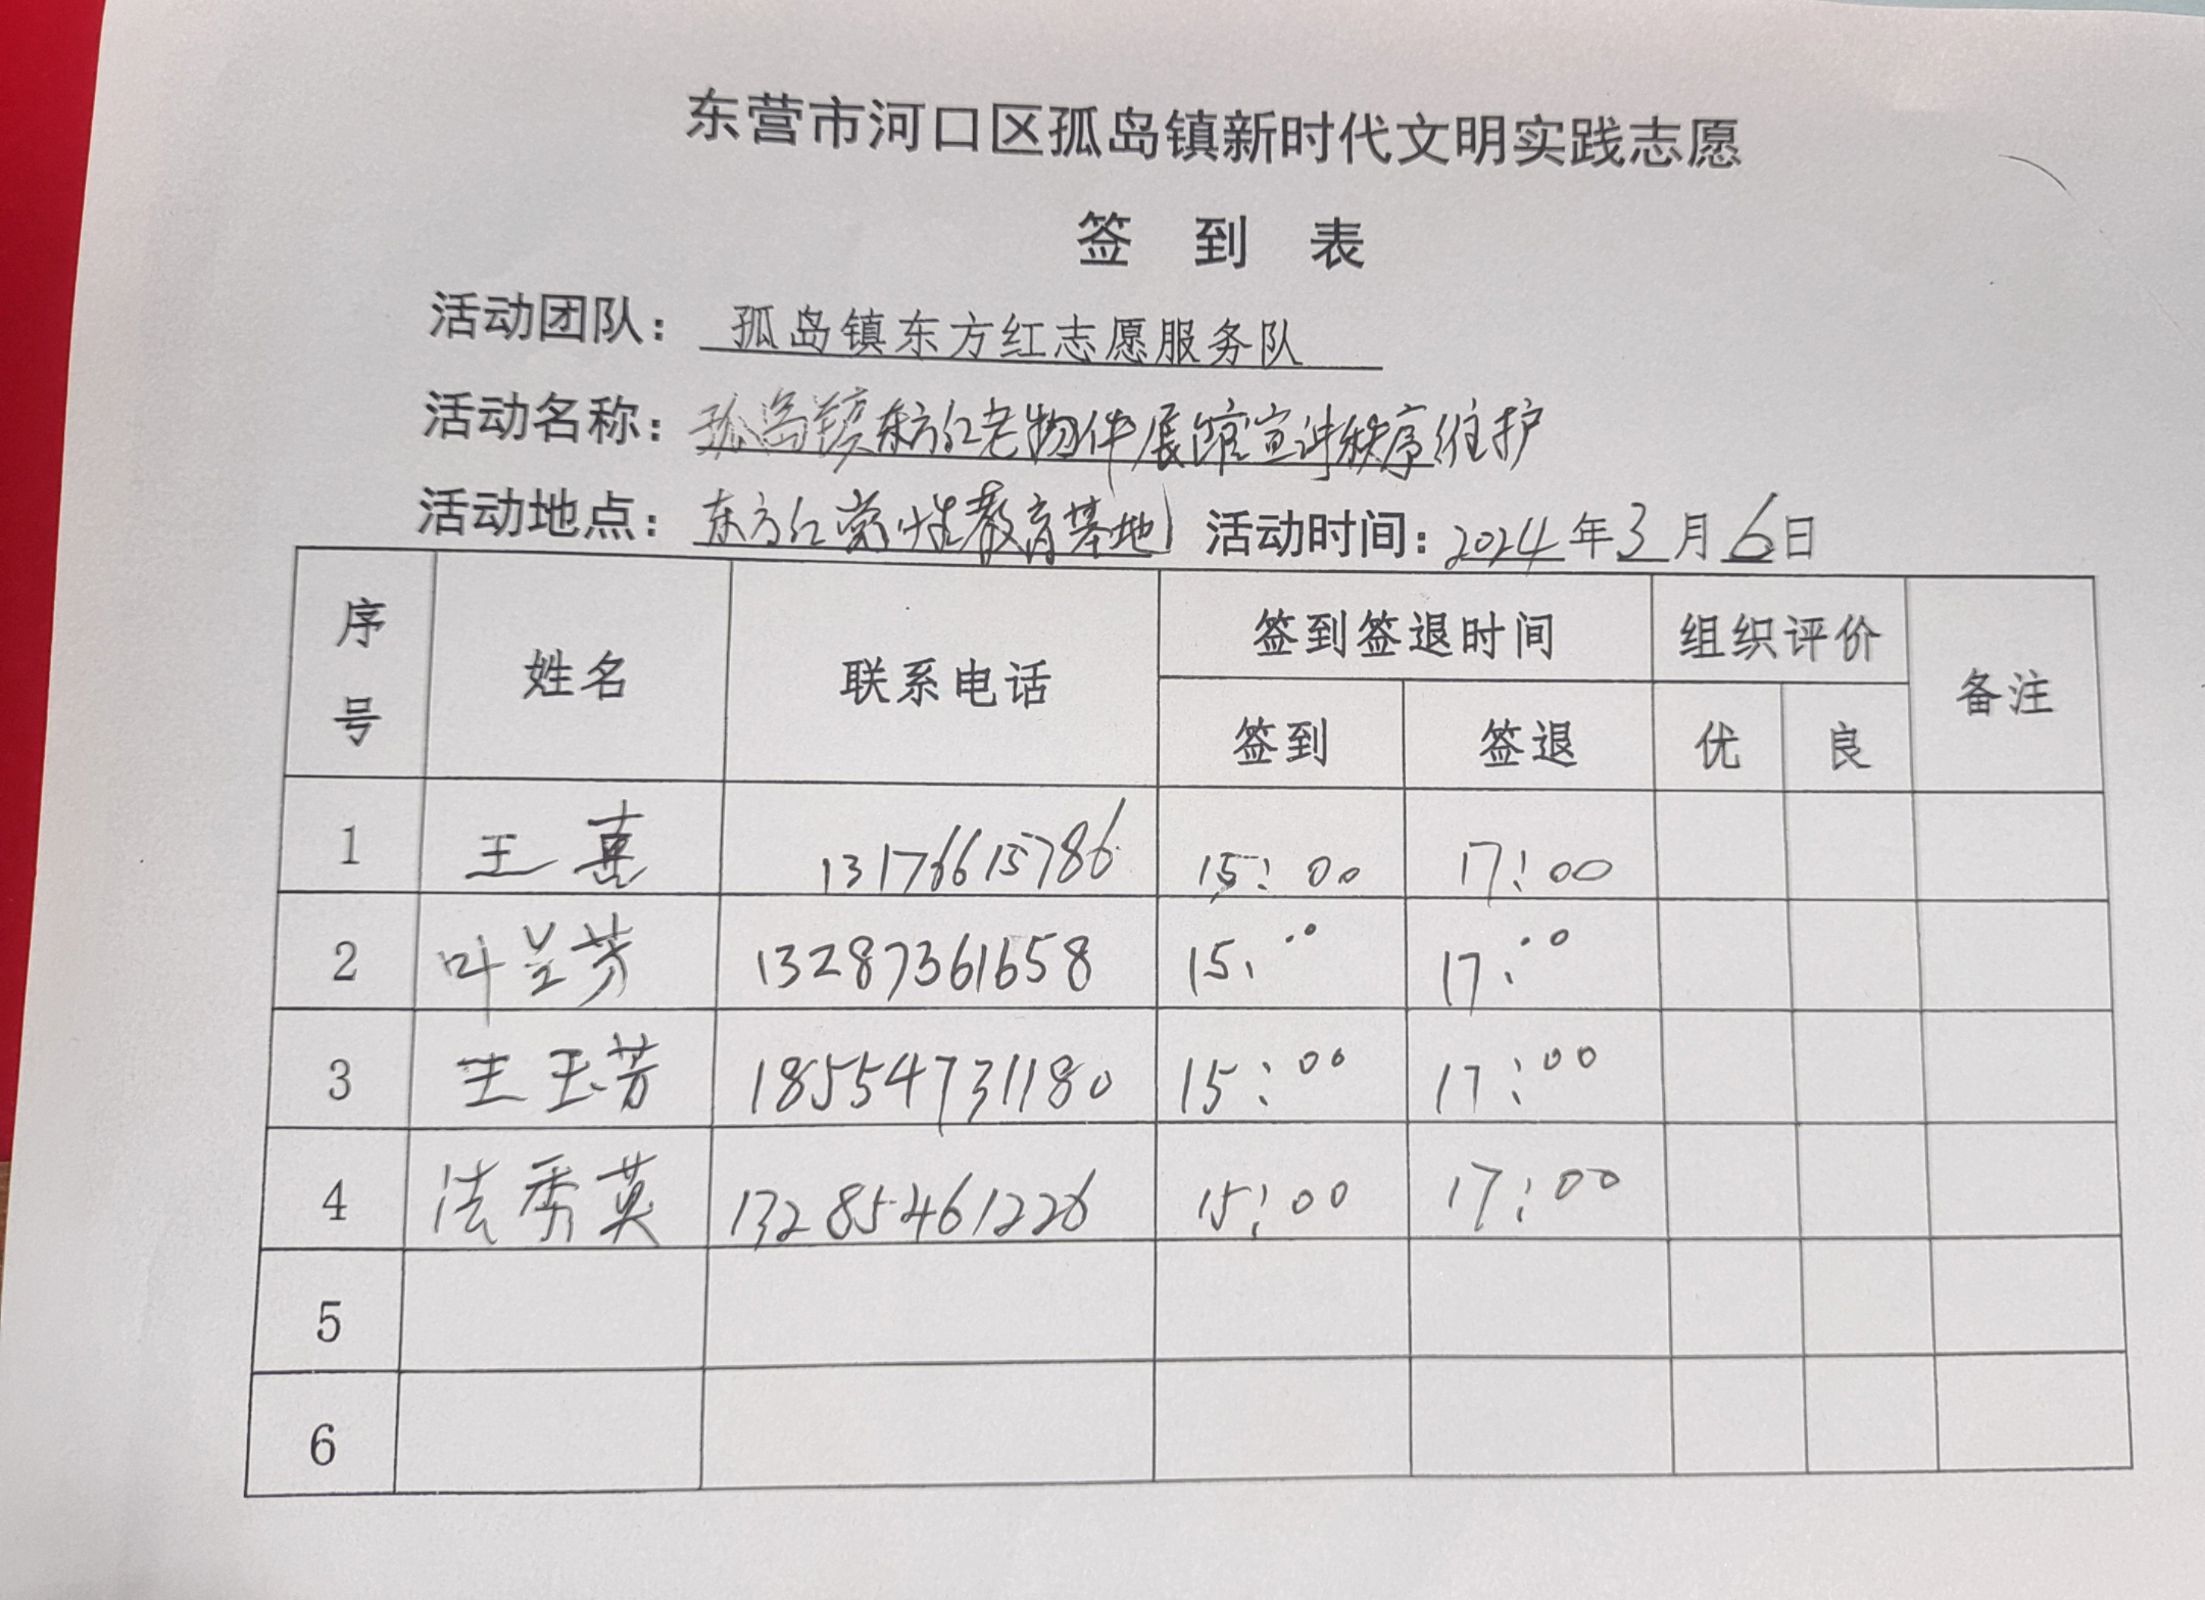 东营市河口区孤岛镇新时代文明实践志愿
签 到 表
活动团队：孤岛镇东方红志愿服务队
活动名称：孤岛镇东方红老物件展馆宣讲秩序维护
活动地点：东方红党性教育基地 活动时间：2024年3月6日
序号 姓名 联系电话 签到签退时间 组织评价 备注
签到 签退 优 良
1 王 13176615786 15:00 17:00
2 叶兰芳 13287361658 15:00 17:00
3 王玉芳 18554731180 15:00 17:00
4 法秀英 13285461226 15:00 17:00
5
6